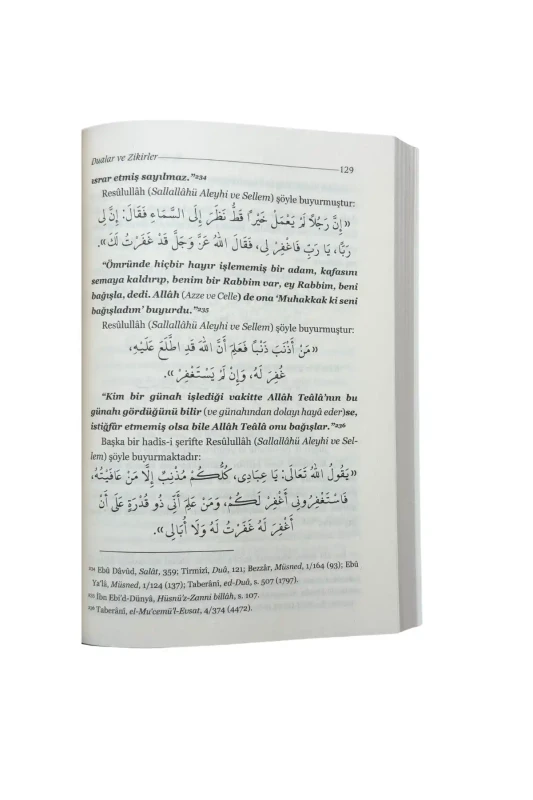 Dualar ve Zikirler
129
ısrar etmiş sayılmaz.”234
Resûlullâh (Sallallâhü Aleyhi ve Sellem) şöyle buyurmuştur:
«إِنَّ رَجُلًا لَمْ يَعْمَلْ خَيْرًا قَطُّ نَظَرَ إِلَى السَّمَاءِ فَقَالَ: إِنَّ لِي
رَبًّا، يَا رَبِّ فَاغْفِرْ لِي، فَقَالَ اللهُ عَزَّ وَجَلَّ قَدْ غَفَرْتُ لَكَ».
“Ömründe hiçbir hayır işlememiş bir adam, kafasını
semaya kaldırıp, benim bir Rabbim var, ey Rabbim, beni
bağışla, dedi. Allâh (Azze ve Celle) de ona ‘Muhakkak ki seni
bağışladım’ buyurdu.”235
Resûlullâh (Sallallâhü Aleyhi ve Sellem) şöyle buyurmuştur:
«مَنْ أَذْنَبَ ذَنْبًا فَعَلِمَ أَنَّ اللهَ قَدِ اطَّلَعَ عَلَيْهِ،
غُفِرَ لَهُ، وَإِنْ لَمْ يَسْتَغْفِرْ».
“Kim bir günah işlediği vakitte Allâh Teâlâ’nın bu
günahı gördüğünü bilir (ve günahından dolayı haya eder)se,
istiğfar etmemiş olsa bile Allâh Teâlâ onu bağışlar.”236
Başka bir hadîs-i şerîfte Resûlullâh (Sallallâhü Aleyhi ve Sel-
lem) şöyle buyurmaktadır:
«يَقُولُ اللهُ تَعَالَى: يَا عِبَادِى، كُلُّكُمْ مُذْنِبٌ إِلَّا مَنْ عَافَيْتُهُ،
فَاسْتَغْفِرُونِي أَغْفِرْ لَكُمْ، وَمَنْ عَلِمَ أَنِّي ذُو قُدْرَةٍ عَلَى أَنْ
أَغْفِرَ لَهُ غَفَرْتُ لَهُ وَلَا أُبَالِى».
234 Ebû Dâvûd, Salât, 359; Tirmizî, Duâ, 121; Bezzâr, Müsned, 1/164 (93); Ebû
Ya’lâ, Müsned, 1/124 (137); Taberânî, ed-Duâ, s. 507 (1797).
235 İbn Ebi’d-Dünyâ, Hüsnü’z-Zanni billâh, s. 107.
236 Taberânî, el-Mu’cemü’l-Evsat, 4/374 (4472).